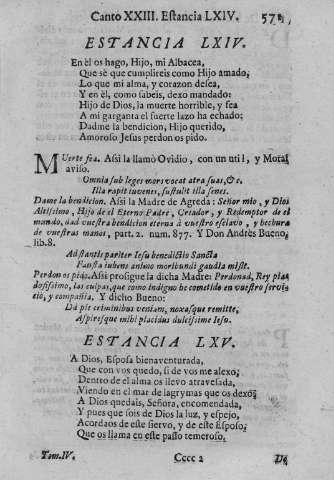 Canto XXIII. Estancia LXIV. 571
ESTANCIA LXIV.
En èl os hago, Hijo, mi Albacea,
Que sè que cumplireis como Hijo amado,
Lo que mi alma, y corazon desea,
Y en èl, como sabeis, dexo mandado:
Hijo de Dios, la muerte horrible, y fea
A mi garganta el fuerte lazo ha echado;
Dadme la bendicion, Hijo querido,
Amoroso Jesus perdon os pido.
Muerte fea. Assi la llamò Ovidio, con un util, y Moral
aviso.
Omnia sub leges mors vocat atra suas, &c.
Illa rapit iuvenes, sustulit illa senes.
Dame la bendicion. Assi la Madre de Agreda: Señor mio, y Dios
Altissimo, Hijo de el Eterno Padre, Criador, y Redemptor de el
mundo, dad vuestra bendicion eterna à vuestro esclavo, y hechura
de vuestras manos, part. 2. num. 877. Y Don Andrès Bueno,
lib. 8.
Adstantis pariter Iesu benedictio Sancta
Fausta iubens animo moribundi gaudia misit.
Perdon os pido. Assi prosigue la dicha Madre: Perdonad, Rey pia-
dosissimo, las culpas, que como indigno he cometido en vuestro servi-
cio, y compañia. Y dicho Bueno:
Dà piè criminibus veniam, noxasque remitte,
Aspiresque mihi placidus dulcissime Iesu.
ESTANCIA LXV.
A Dios, Esposa bienaventurada,
Que con vos quedo, si de vos me alexo,
Dentro de el alma os llevo atravesada,
Viendo en el mar de lagrymas que os dexo;
A Dios quedais, Señora, encomendada,
Y pues que sois de Dios la luz, y espejo,
Acordaos de este siervo, y de este Esposo,
Que os llama en este passo temeroso.
Tom. IV. Cccc 2 De